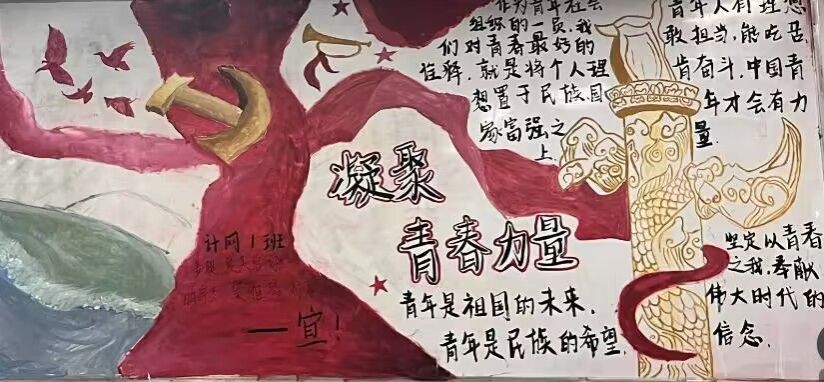 作为青年社会
组织的一员,我
们对青春最好的
诠释,就是将个人理
想置于民族国
家富强之
上
青年人有理想
敢担当,能吃苦
肯奋斗,中国青
年才会有力
量
凝聚
青春力量
计网1班
一宣!
青年是祖国的未来,
青年是民族的希望
坚定以青春
之我,奉献
伟大时代的
信念.